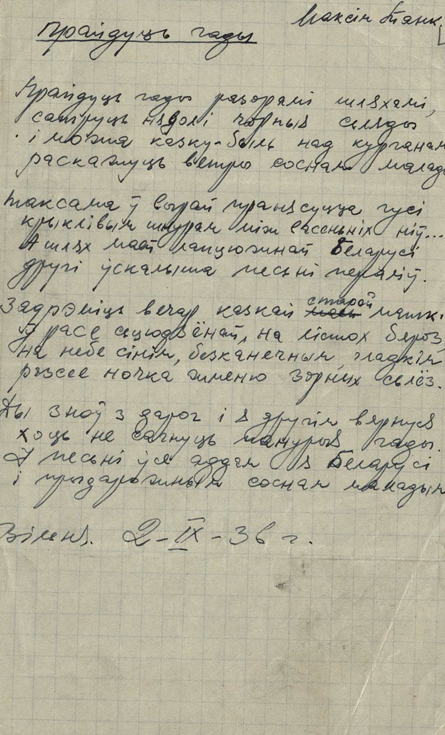 Максім Танк
Прайдуць гады
Прайдуць гады разоралі шляхамі,
сатруць нядолі чорныя сляды
і можа казку-быль над курганам
раскажуць ветро соснам малады
Таксама ў вырай пранясуцца гусі
крыклівым шнурам між васеньніх ніў...
А шлях маёй ланцужнай Беларусі
другі ўскалыша песьні пераліў.
Задрэміць вечар казкай старой
У расе сьцюдзёнай, на лістох бяроз
на небе сінім, безканечным гладкім
рассее ночка жменю зорных сьлёз.
Ды зноў з дарог і я другім вярнуся
хоць не сачнуць панурыя гады.
І песьні ўсе аддам я Беларусі
і прыдарожным соснам маладым
Вільня. 2-IX-36 г.